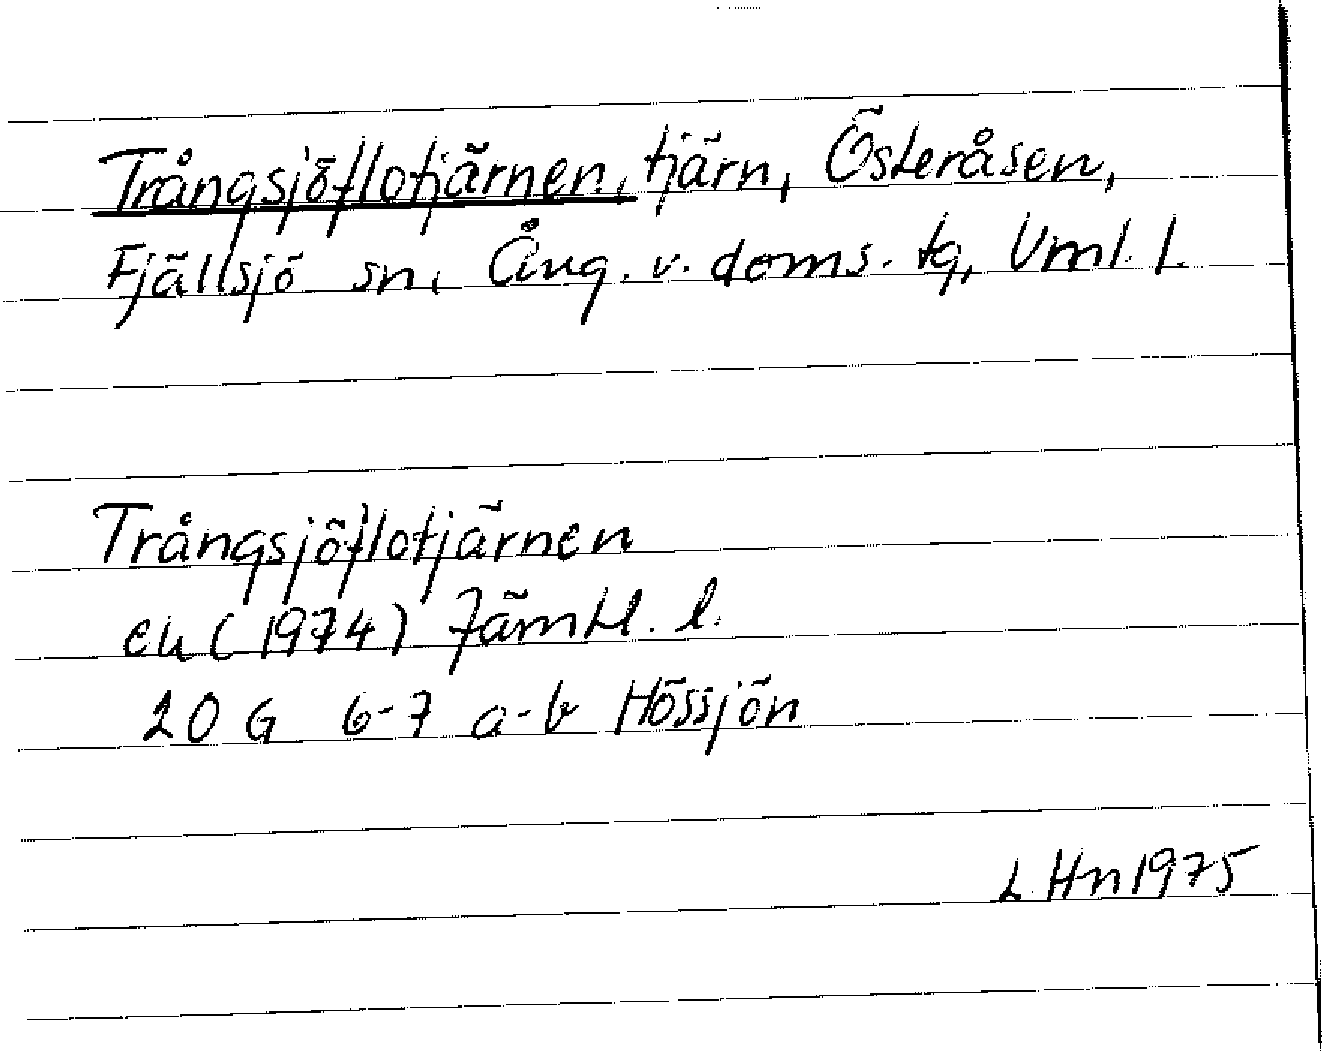 Trångsjöflotjärnen, tjärn, Österåsen,
Fjällsjö sn, Ång. v. doms. tg, Vml. l.
Trångsjöflotjärnen
ek (1974) Jämtl. l.
20 G 6-7 a-b Hössjön
L Hn 1975